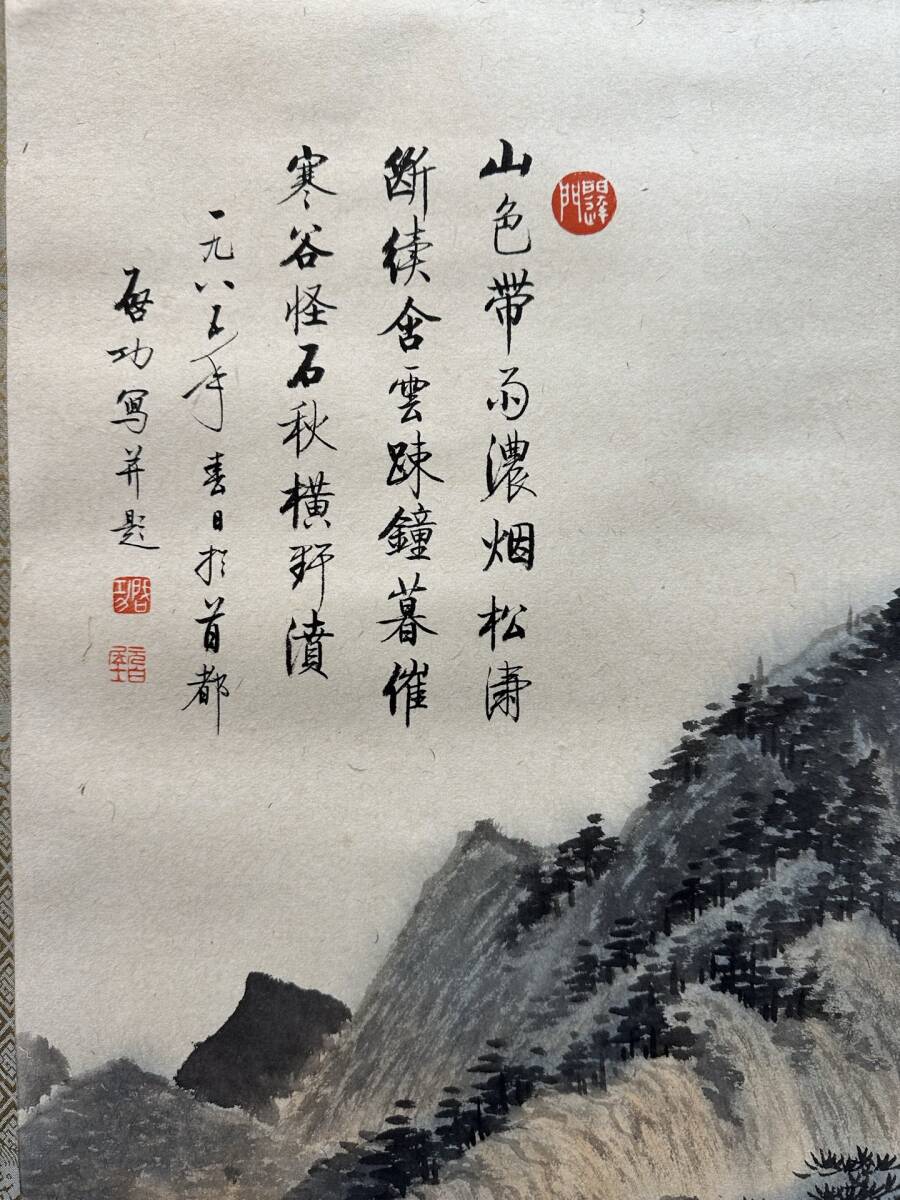 山色帶雨濃烟松濤
斷續含雲踈鐘暮催
寒谷怪石秋橫野瀆
一九八五年春日於首都
啓功寫并題
啓功